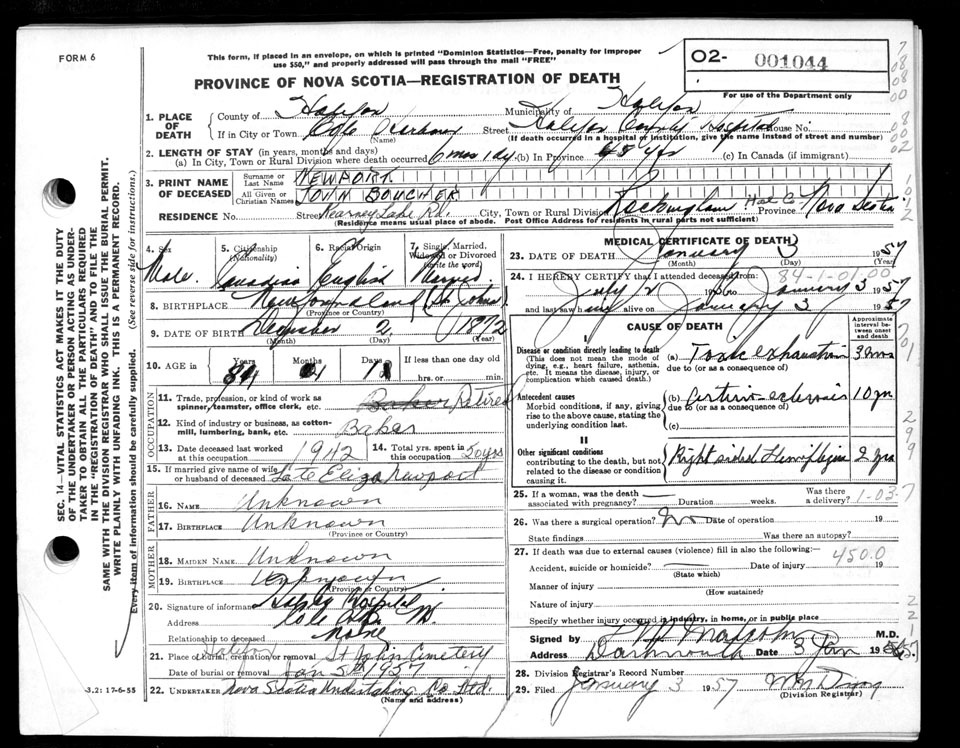 FORM 6
This form, if placed in an envelope, on which is printed "Dominion Statistics—Free, penalty for improper
use $50," and properly addressed will pass through the mail "FREE"
O2- 001044
For use of the Department only
PROVINCE OF NOVA SCOTIA—REGISTRATION OF DEATH
1. PLACE OF DEATH
County of Halifax Municipality of Halifax
If in City or Town Cole Harbour Street Halifax County Hospital House No.
(Name) (If death occurred in a hospital or institution, give the name instead of street and number)
2. LENGTH OF STAY (in years, months and days)
(a) In City, Town or Rural Division where death occurred 6 mos 1 dy. (b) In Province 45 yrs (c) In Canada (if immigrant)
3. PRINT NAME OF DECEASED
Surname or Last Name NEWPORT
All Given or Christian Names JOHN BOUCHER
RESIDENCE No. Street Kearney Lake Rd. City, Town or Rural Division Rockingham Hal Co Province Nova Scotia
(Residence means usual place of abode. Post Office Address for residents in rural parts not sufficient)
4. Sex Male
5. Citizenship (Nationality) Canadian
6. Racial Origin English
7. Single, Married, Widowed or Divorced (write the word)
8. BIRTHPLACE Newfoundland (St Johns)
(Province or Country)
9. DATE OF BIRTH December 2, 1872
(Month) (Day) (Year)
10. AGE in Years 84 Months Days If less than one day old
hrs. or min.
OCCUPATION
11. Trade, profession, or kind of work as spinner, teamster, office clerk, etc. Baker Retired
12. Kind of industry or business, as cotton-mill, lumbering, bank, etc. Baker
13. Date deceased last worked at this occupation 1942
14. Total yrs. spent in this occupation 50 yrs
15. If married give name of wife or husband of deceased Late Eliza Newport
FATHER
16. NAME Unknown
17. BIRTHPLACE Unknown
(Province or Country)
MOTHER
18. MAIDEN NAME Unknown
19. BIRTHPLACE Unknown
(Province or Country)
20. Signature of informant Hospital
Address Cole
Relationship to deceased None
21. Place of burial, cremation or removal Halifax St John Cemetery
Date of burial or removal Jan 5th 1957
22. UNDERTAKER Nova Scotia Undertaking Co Ltd.
(Name and address)
MEDICAL CERTIFICATE OF DEATH
23. DATE OF DEATH January 3 1957
(Month) (Day)
24. I HEREBY CERTIFY that I attended deceased from: 84-1-01.00
July 2 1956 to January 3 1957
and last saw h alive on January 3 1957
CAUSE OF DEATH
Approximate interval between onset and death
I
Disease or condition directly leading to death (a) Toxic exhaustion 3 mos
(This does not mean the mode of dying, e.g., heart failure, asthenia, etc. It means the disease, injury, or complication which caused death.)
due to (or as a consequence of)
Antecedent causes (b) Arterio-sclerosis 10 yrs
Morbid conditions, if any, giving rise to the above cause, stating the underlying condition last.
due to (or as a consequence of)
(c)
II
Other significant conditions Right sided Hemiplegia 2 yrs
contributing to the death, but not related to the disease or condition causing it.
25. If a woman, was the death associated with pregnancy? — Duration weeks. Was there a delivery? 1-03-7
26. Was there a surgical operation? No Date of operation 19
State findings Was there an autopsy?
27. If death was due to external causes (violence) fill in also the following:— 450.0
Accident, suicide or homicide? — Date of injury 19
(State which)
Manner of injury
(How sustained)
Nature of injury
Specify whether injury occurred in industry, in home, or in public place
Signed by Malcolm M.D.
Address Dartmouth Date 3 Jan 1957
28. Division Registrar's Record Number
29. Filed January 3 1957
(Division Registrar)
SEC. 14—VITAL STATISTICS ACT MAKES IT THE DUTY
OF THE UNDERTAKER OR PERSON ACTING AS UNDER-
TAKER TO OBTAIN ALL THE PARTICULARS REQUIRED
IN THE "REGISTRATION OF DEATH" AND TO FILE THE
SAME WITH THE DIVISION REGISTRAR WHO SHALL ISSUE THE BURIAL PERMIT.
WRITE PLAINLY WITH UNFADING INK. THIS IS A PERMANENT RECORD.
Every item of information should be carefully supplied. (See reverse side for instructions.)
3.2: 17-6-55